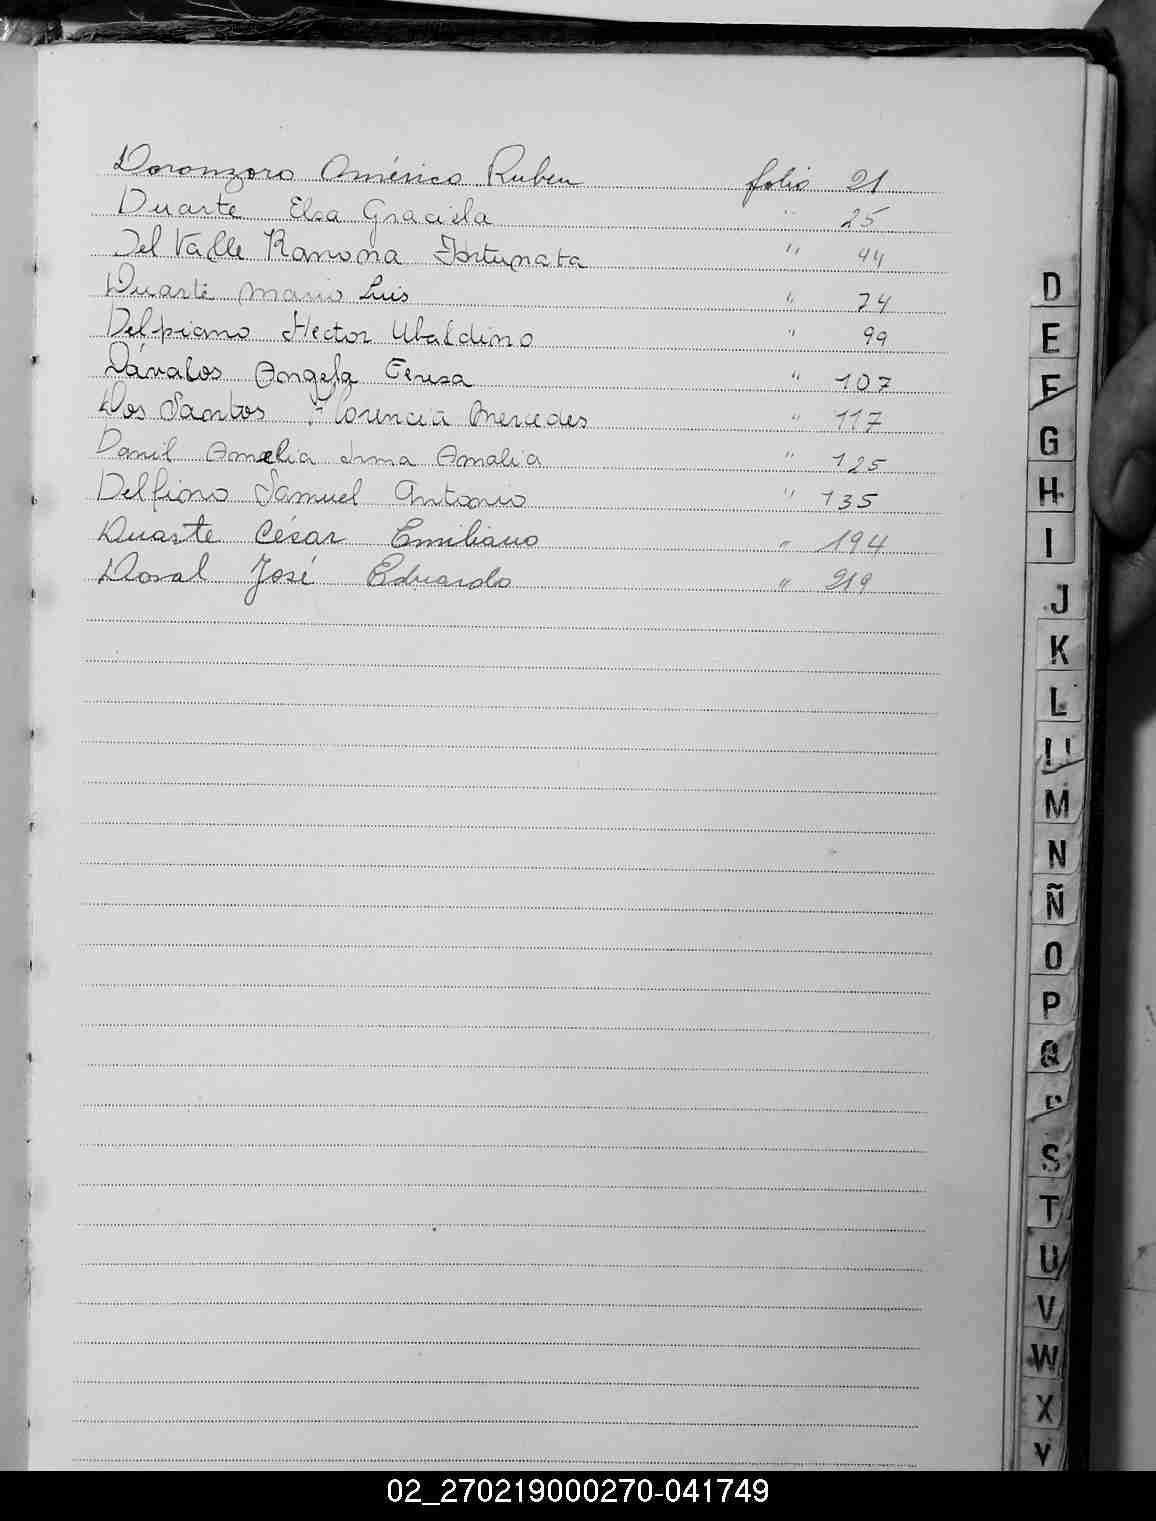 Doronzoro Américo Ruben folio 21
Duarte Elsa Graciela " 25
Del Valle Ramona Fortunata " 44
Duarte Mario Luis " 74
Delpiano Hector Ubaldino " 99
Dávalos Angela Teresa " 107
Dos Santos Florencia Mercedes " 117
Danil Amelia Irma Amalia " 125
Delfiono Samuel Antonio " 135
Duarte César Emiliano " 194
Dosal José Eduardo " 219
D
E
F
G
H
I
J
K
L
M
N
Ñ
O
P
Q
S
T
U
V
W
X
Y
02_270219000270-041749